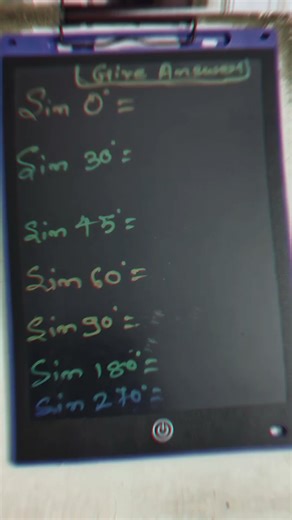 Give Answer
Sin 0°=
Sin 30°=
Sin 45°=
Sin 60°=
Sin 90°=
Sin 180°=
Sin 270°=